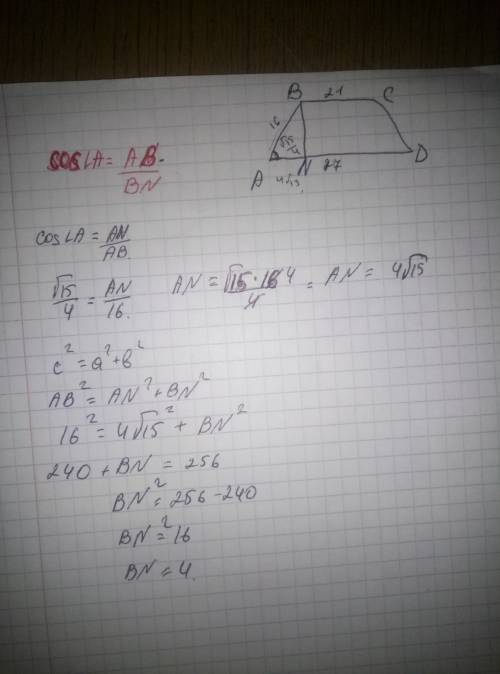 B 21 C
16
√15/4
A 4√15 N 27 D
cos∠A = AB/BN
cos∠A = AN/AB
√15/4 = AN/16. AN = √15·16 4/4 = AN = 4√15
c² = a² + b²
AB² = AN² + BN²
16² = 4√15² + BN²
240 + BN = 256
BN² = 256 - 240
BN² = 16
BN = 4.